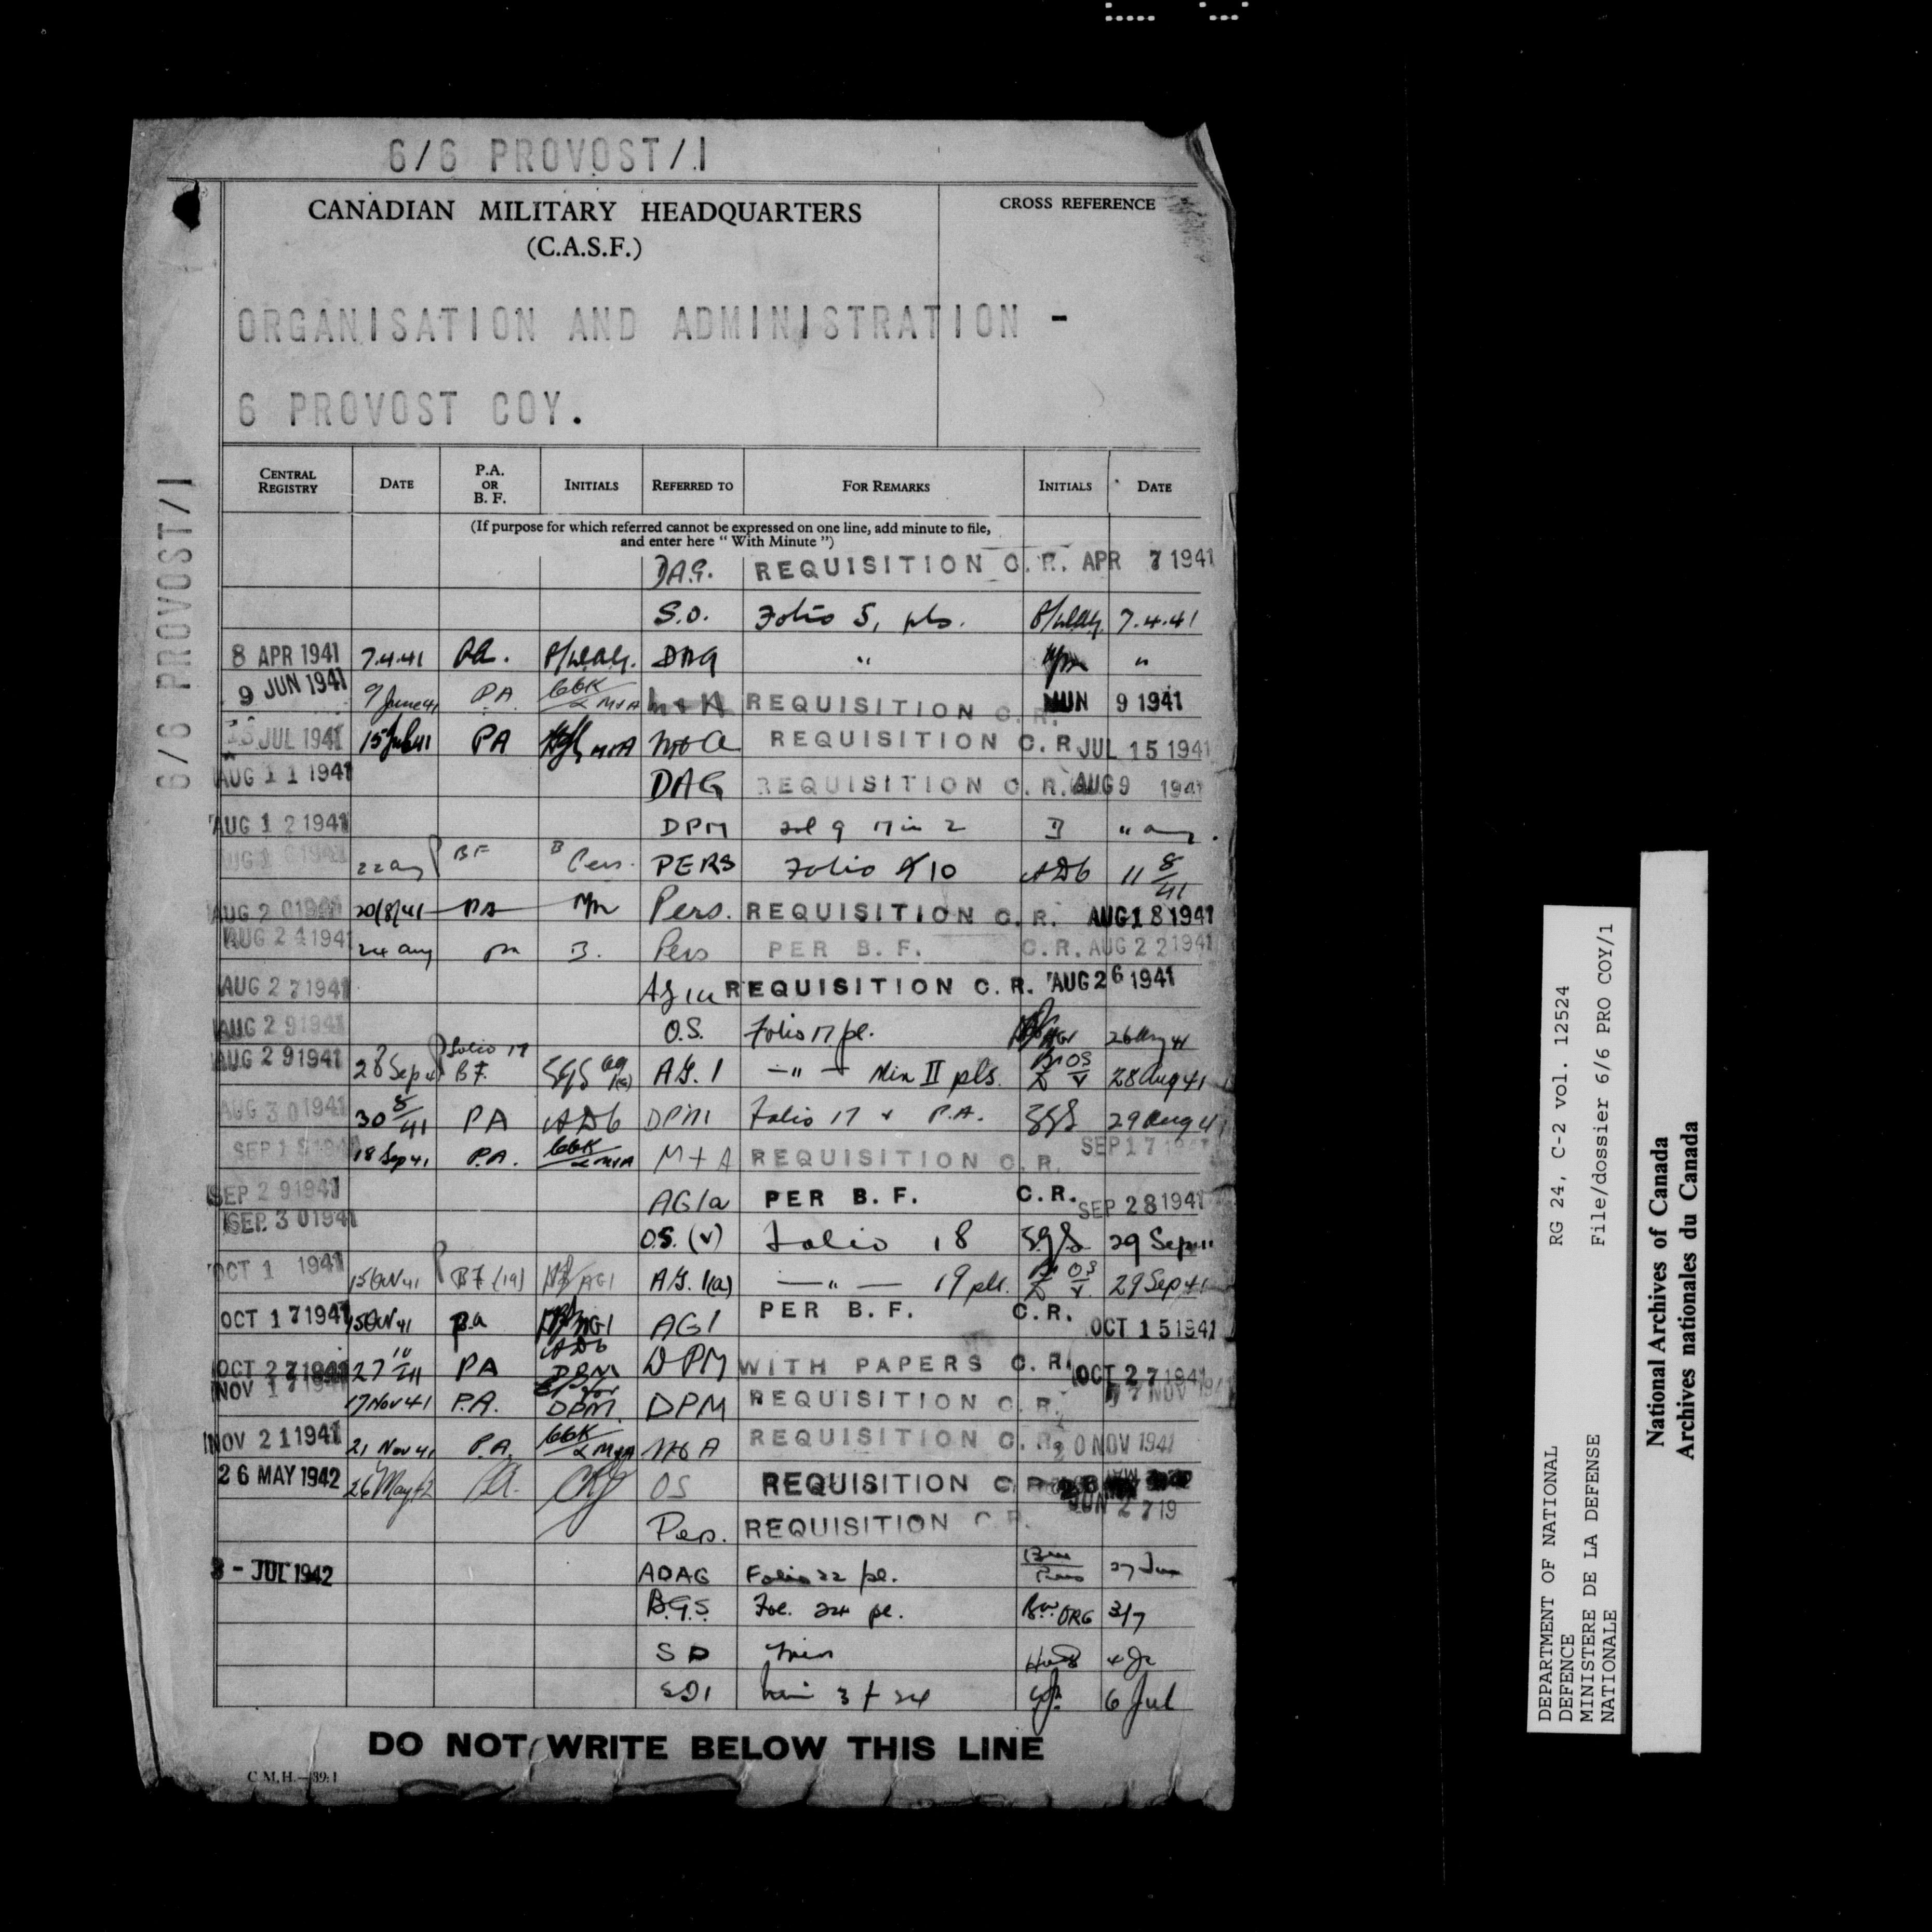 6/6 PROVOST/1
CANADIAN MILITARY HEADQUARTERS
(C.A.S.F.)
CROSS REFERENCE
ORGANISATION AND ADMINISTRATION -
6 PROVOST COY.
6/6 PROVOST/1
CENTRAL REGISTRY DATE P.A. OR B. F. INITIALS REFERRED TO FOR REMARKS INITIALS DATE
(If purpose for which referred cannot be expressed on one line, add minute to file,
and enter here " With Minute ")
D.A.G. REQUISITION C. R. APR 7 1941
S.O. Folio 5, pls. 7.4.41
8 APR 1941 7.4.41 P.A. DAG " "
9 JUN 1941 9 June 41 P.A. GGK M+A REQUISITION C. R. JUN 9 1941
15 JUL 1941 15 Jul 41 PA M+A REQUISITION C. R. JUL 15 1941
AUG 11 1941 DAG REQUISITION C. R. AUG 9 1941
AUG 12 1941 DPM
22 Aug BF B Pers. PERS Folio 10 ADb 11 8/41
AUG 20 1941 20/8/41 PA Pers. REQUISITION C. R. AUG 18 1941
AUG 24 1941 24 Aug B. Pers PER B. F. C. R. AUG 22 1941
AUG 27 1941 AG 1a REQUISITION C. R. AUG 26 1941
AUG 29 1941 O.S. Folio 17 pl. 26 Aug 41
AUG 29 1941 28 Sep 41 Folio 17 B.F. SGS A.G. 1 — " — Min II pls. OS 28 Aug 41
AUG 30 1941 30 8/41 PA ADb DPM Folio 17 & P.A. SGS 29 Aug 41
SEP 18 1941 18 Sep 41 P.A. GGK M+A M+A REQUISITION C. R. SEP 17
SEP 29 1941 AG1a PER B. F. C. R. SEP 28 1941
SEP 30 1941 O.S. (v) Folio 18 SGS 29 Sep
OCT 1 1941 15 Oct 41 B.F. (19) AG1 A.G. 1(a) — " — 19 pls. OS 29 Sep 41
OCT 17 1941 15 Oct 41 P.A. AG1 AG1 PER B. F. C. R. OCT 15 1941
OCT 27 1941 27 10/41 PA ADb DPM DPM WITH PAPERS C. R. OCT 27 1941
NOV 17 1941 17 Nov 41 P.A. for DPM DPM REQUISITION C. R. 17 NOV
NOV 21 1941 21 Nov 41 P.A. GGK M+A M+A REQUISITION C. R. 20 NOV 1941
26 MAY 1942 26 May 42 P.A. OS REQUISITION C. R.
Pers. REQUISITION C. R. JUN 27 19
3 - JUL 1942 ADAG Folio 22 pl. Pers 27 Jun
B.G.S. Fol. 24 pl. ORG 3/7
S D
SD1 6 Jul
DO NOT WRITE BELOW THIS LINE
C.M.H.—39:1
DEPARTMENT OF NATIONAL DEFENCE
MINISTERE DE LA DEFENSE NATIONALE
RG 24, C-2 vol. 12524
File/dossier 6/6 PRO COY/1
National Archives of Canada
Archives nationales du Canada